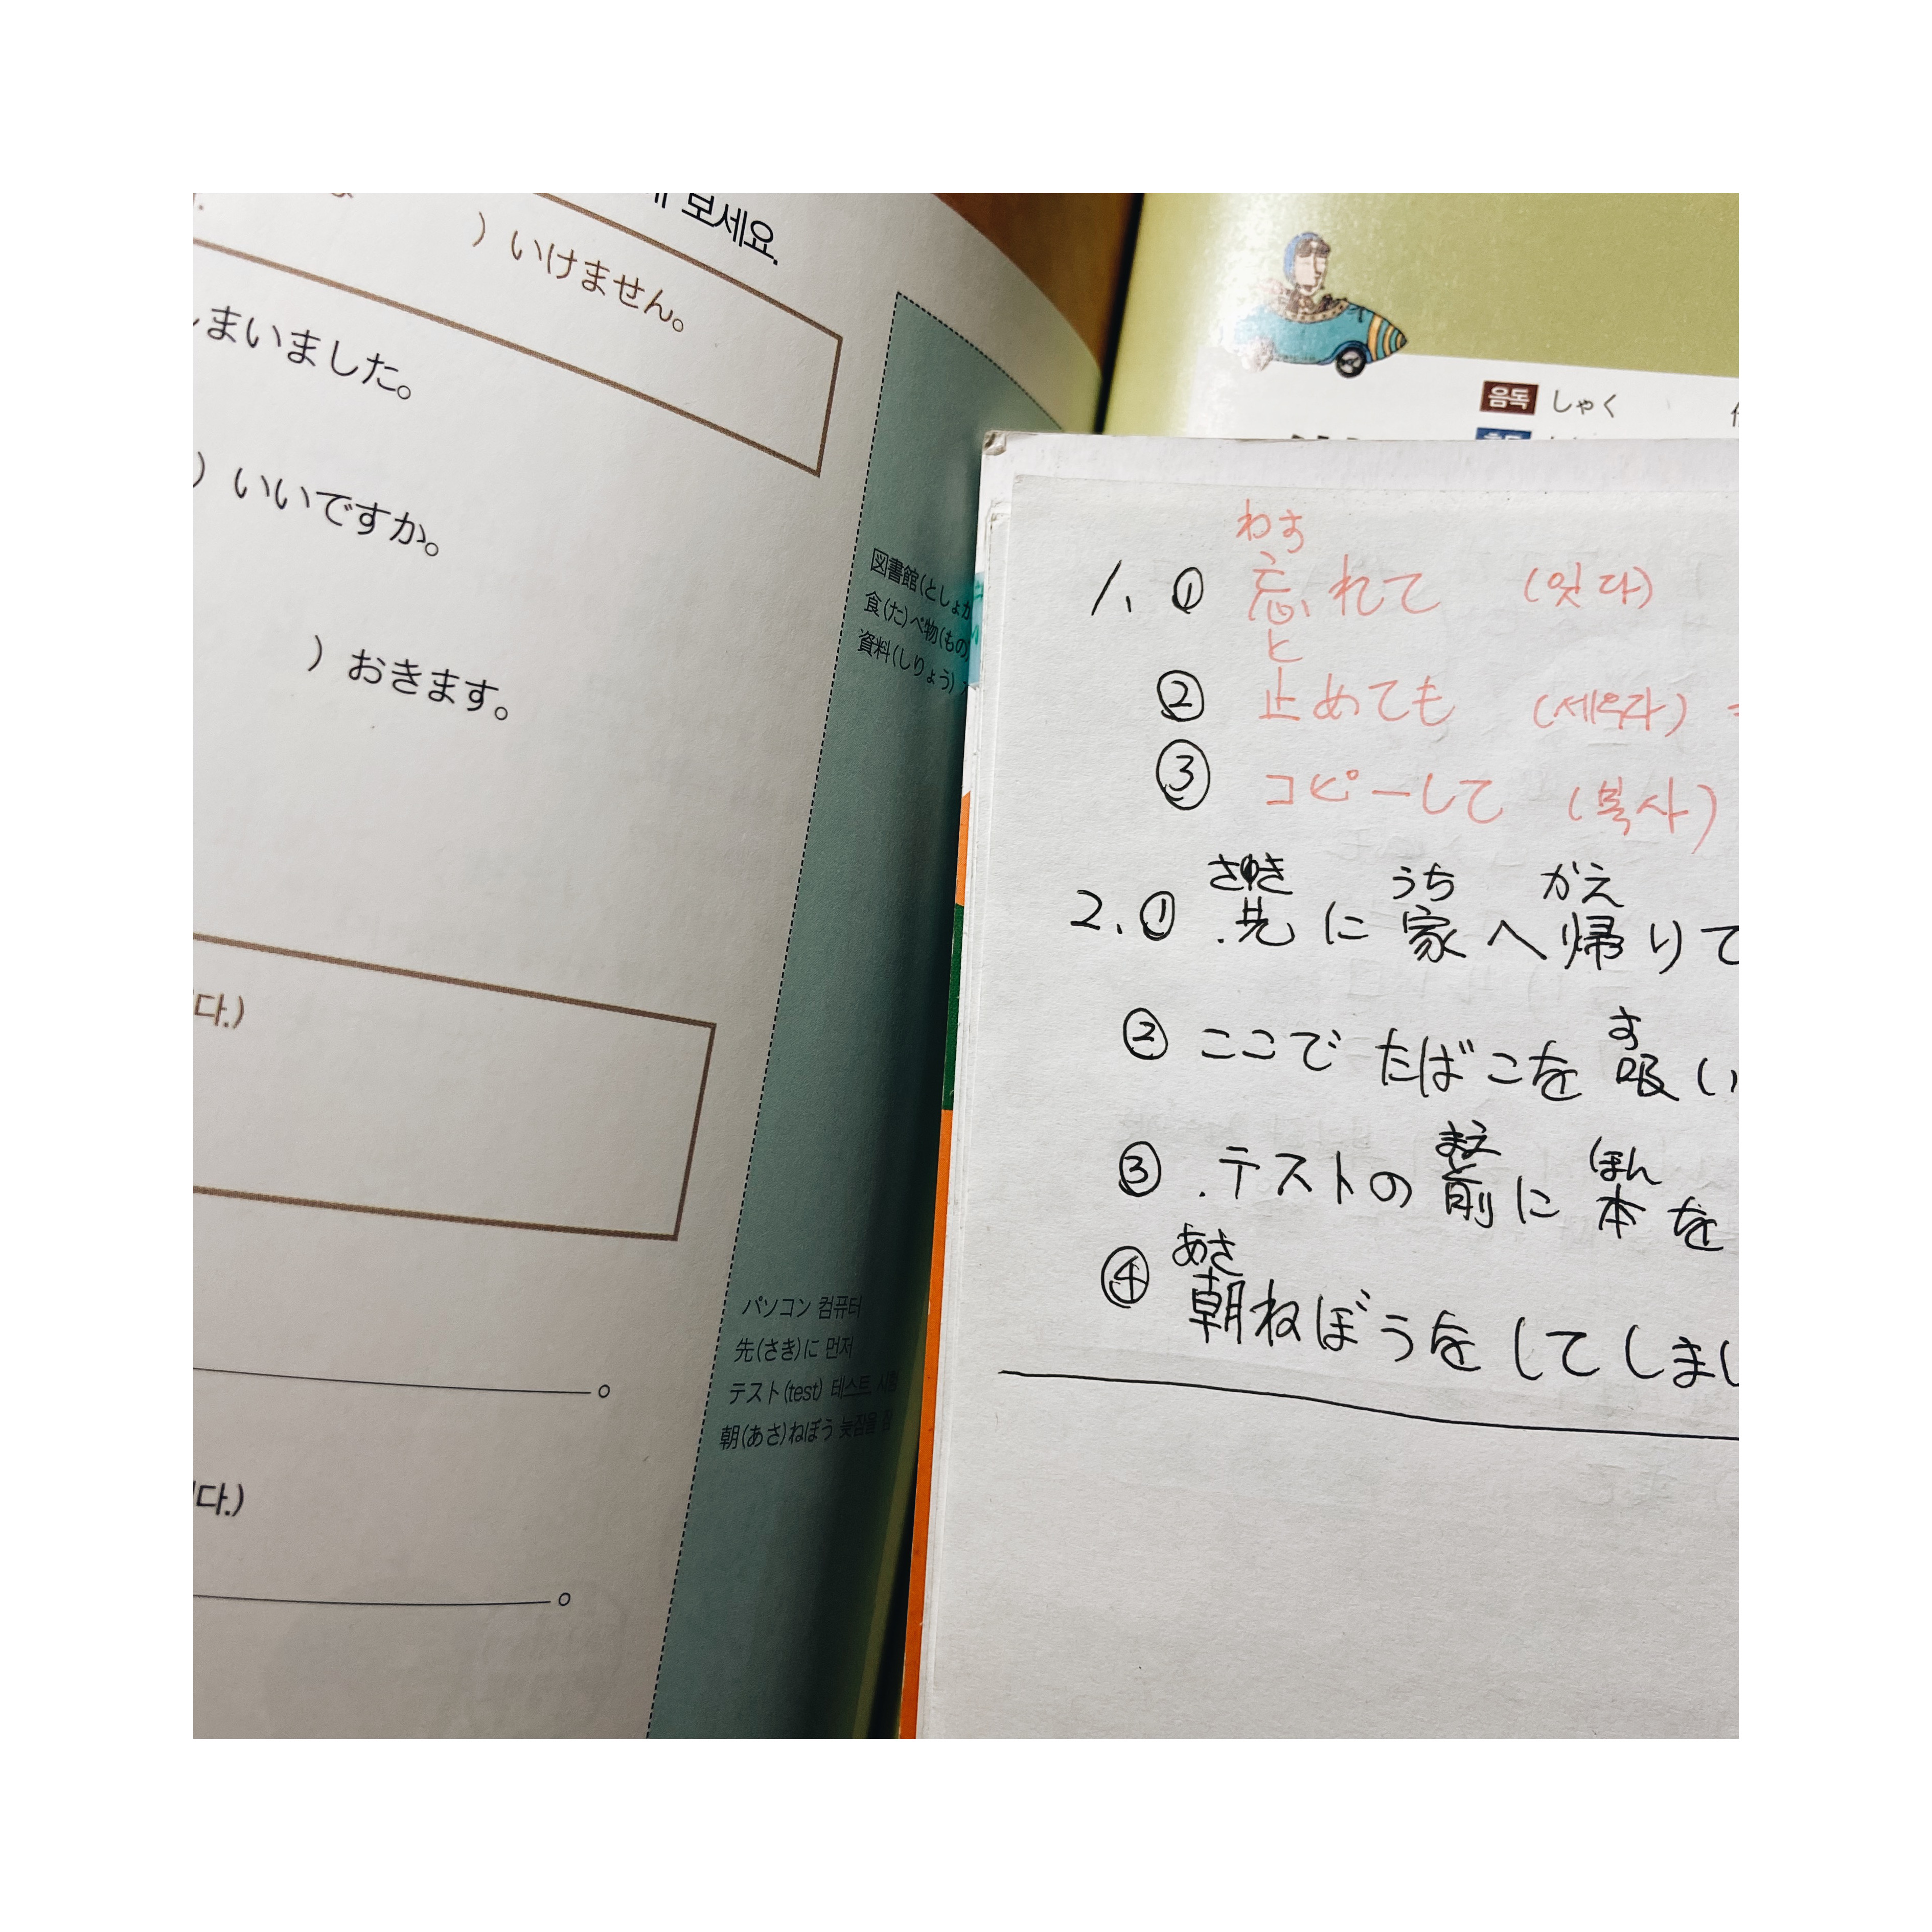 보세요.
) いけません。
しまいました。
) いいですか。
) おきます。
다.)
다.)
図書館(としょか
食(た)べ物(もの)
資料(しりょう)
パソコン 컴퓨터
先(さき)に 먼저
テスト(test) 테스트, 시험
朝(あさ)ねぼう 늦잠을 잠
음독 しゃく
わす
1. ① 忘れて (잊다)
と
② 止めても (세우다)
③ コピーして (복사)
さき うち がえ
2. ① 先に 家へ帰りて
す
② ここで たばこを 吸い
まえ ほん
③ テストの 前に 本を
あさ
④ 朝ねぼうを してしまい